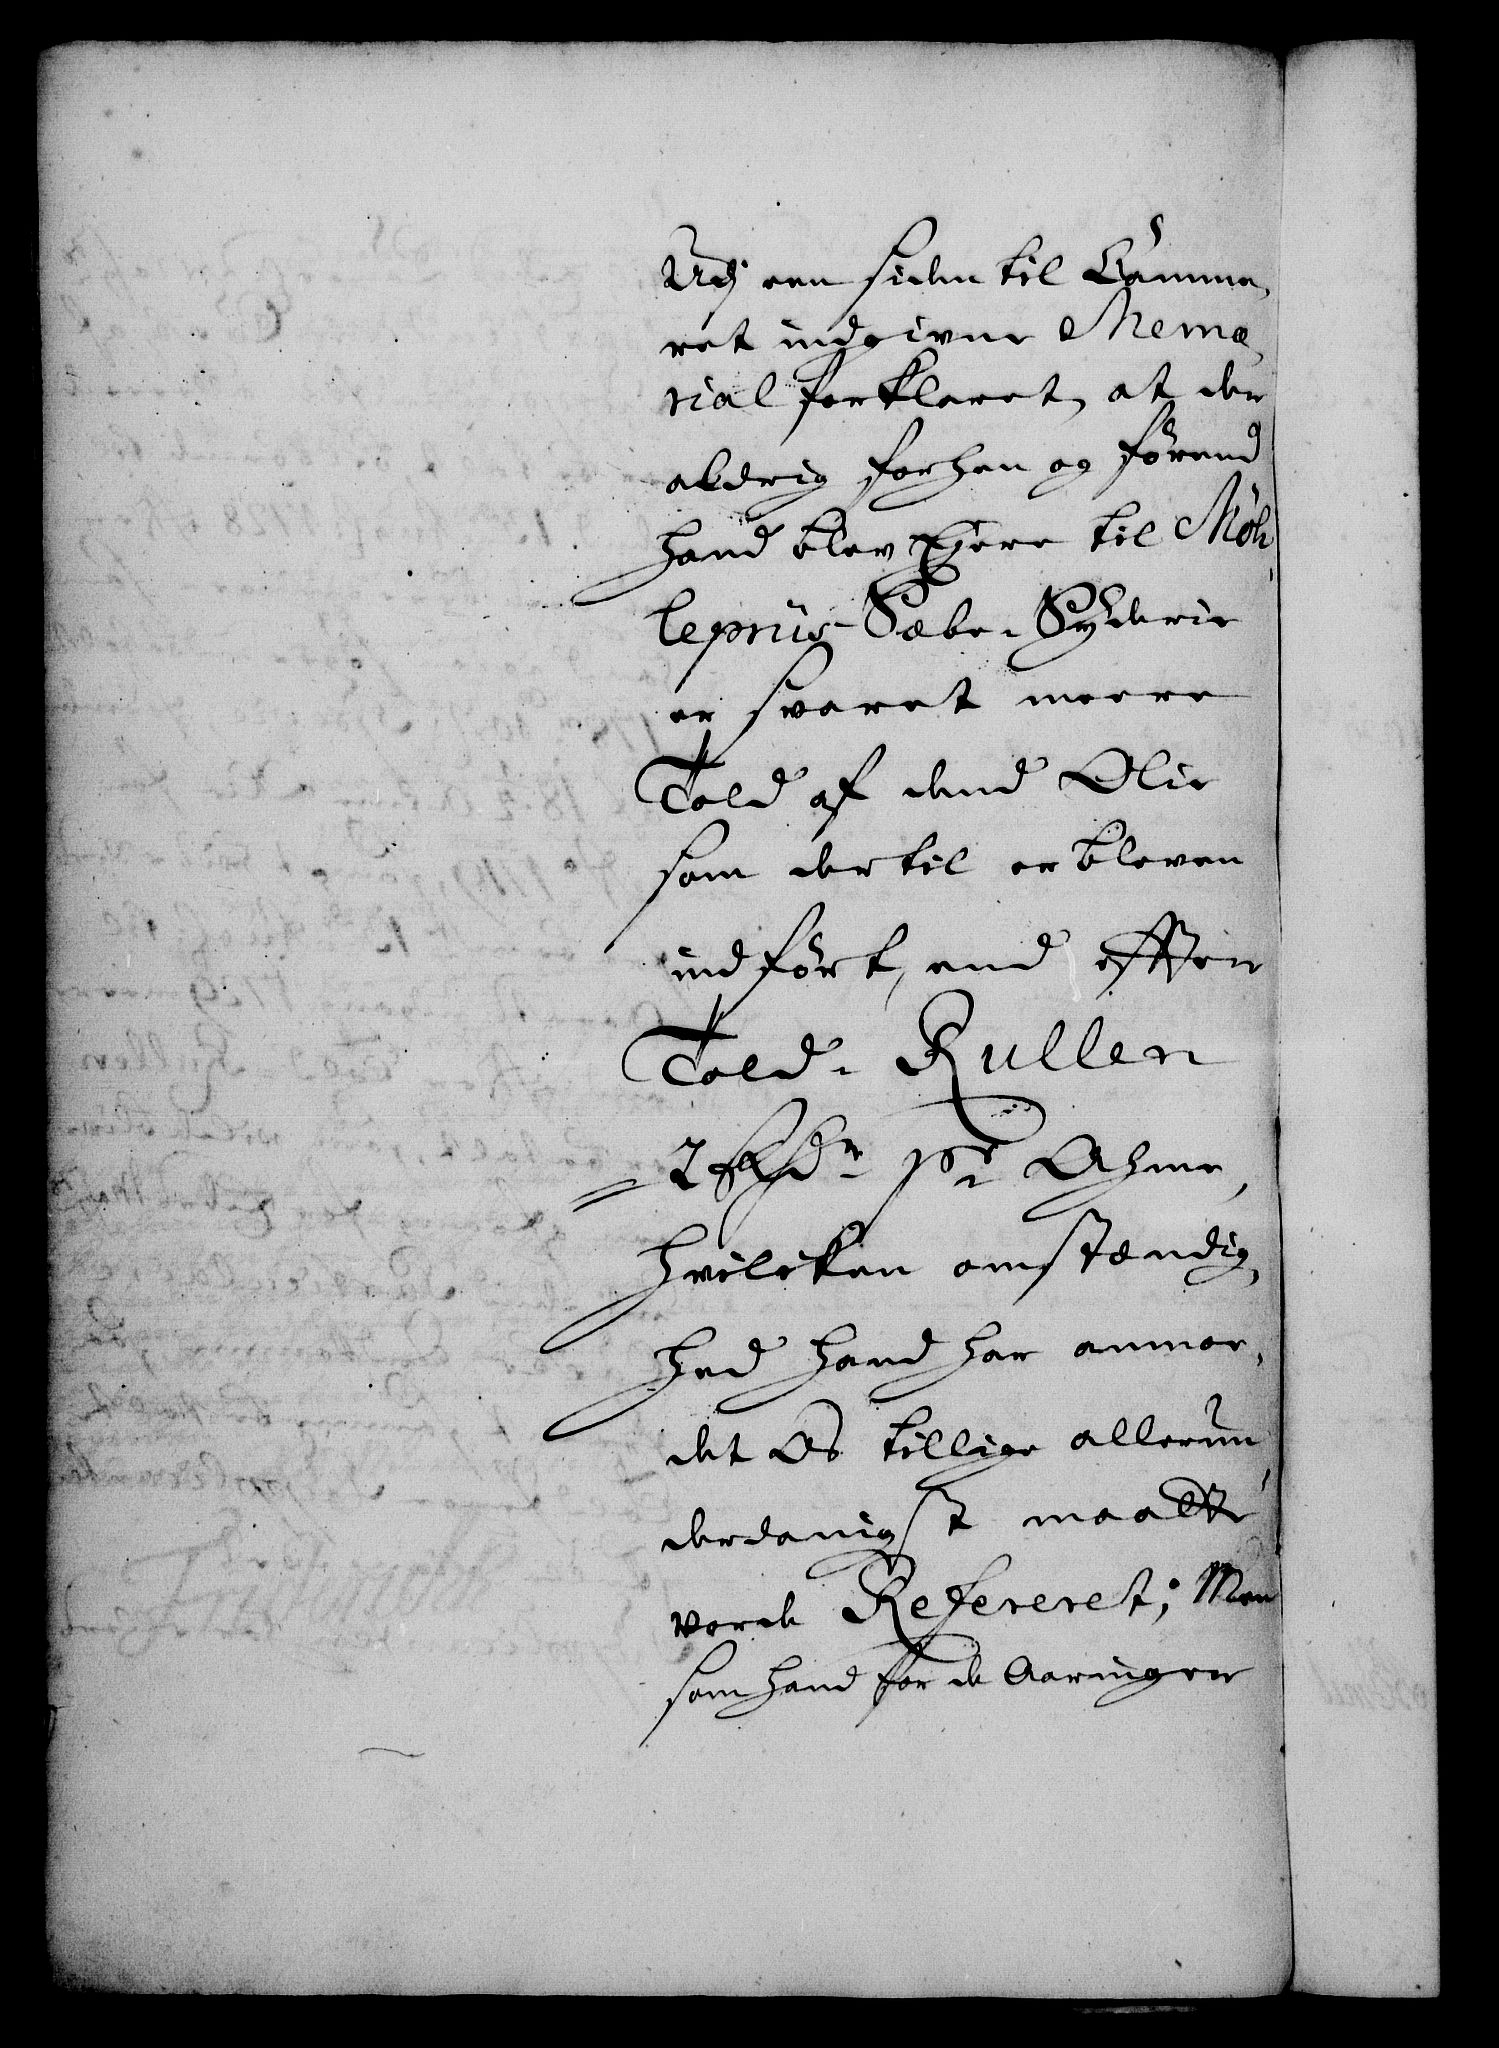 Udj een siden til Camme,
ret indgiven Memo,
rial forklaret, at der
aldrig forhen og førend
hand blev Ejere til Møh,
lepriis-Sæbe-Syderie
er svaret meere
Told af dend Olie
som dertil er bleven
indført, end efter
Told-Rullen
2 Rdr pr Ahme,
hvilcken omstændig,
hed hand har anmo,
det Os tillige allerun,
derdanigst maatte
vorde Refereret; Men
som hand for de Aaringer